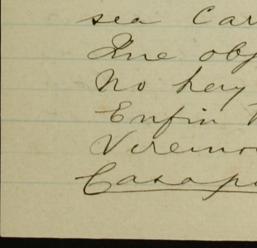 sea Car
Que obj
No hay
Enfin
Veremo
Casap